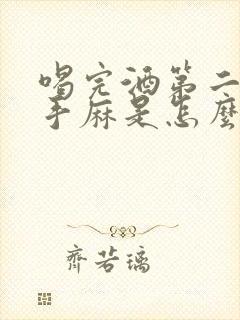 喝完酒第二
手麻是怎麼
齊若璃